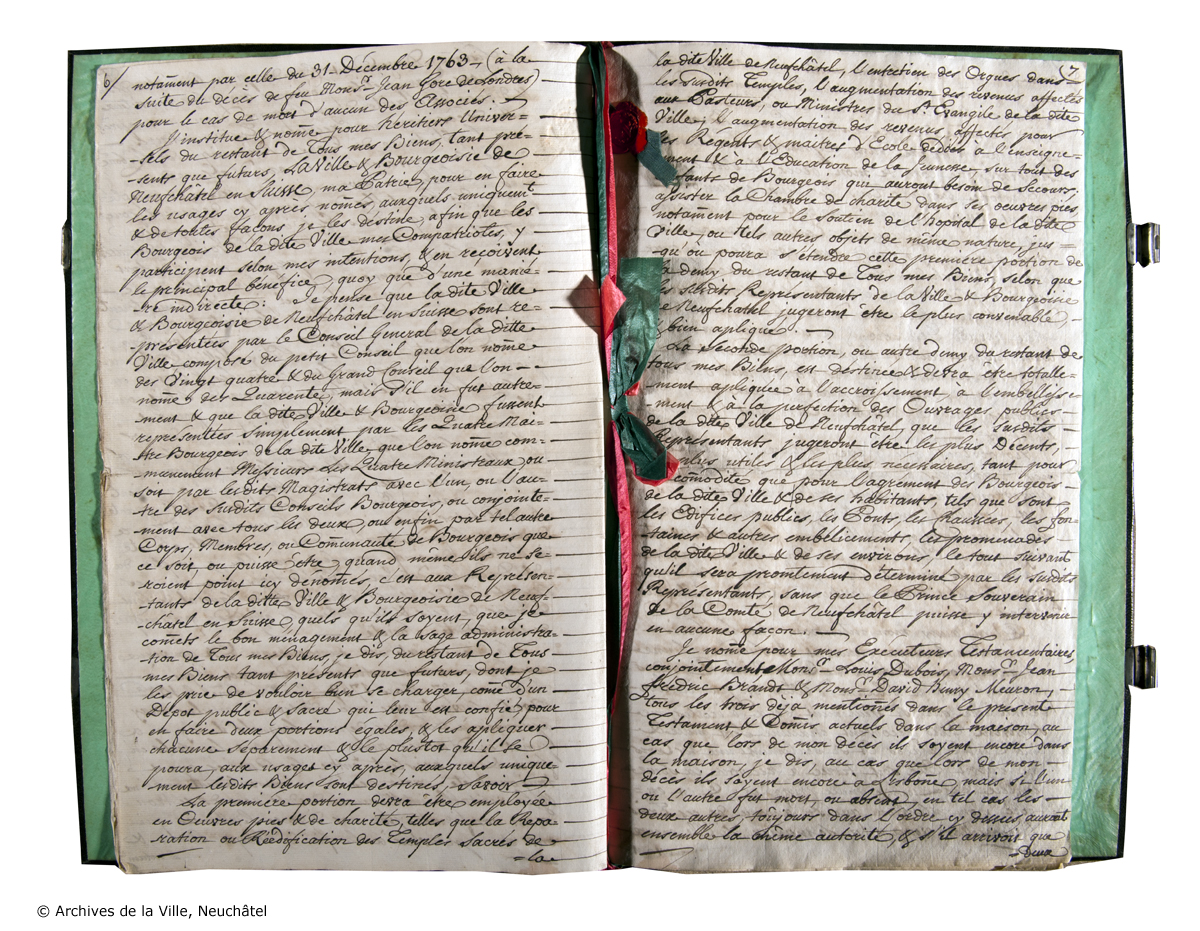 6/
notament par celle du 31 Décembre 1763, (à la
suite du décès de feu Mons.r Jean Gore de Londres)
pour le cas de mort d'aucun des Associés. —
J'institue & nome pour heritiers Univer=
sels du restant de Tous mes Biens, tant pre=
sents que futurs, La Ville & Bourgeoisie de
Neufchâtel en Suisse, ma Patrie, pour en faire
les usages cy après només, auxquels uniquem.t
& de toutes façons, je les destine, afin que les
Bourgeois de la dite Ville mes Compatriotes, y
participent selon mes intentions, & en reçoivent
le principal bénéfice, quoy que d'une manié=
re indirecte: Je pense que la dite Ville
& Bourgeoisie de Neufchâtel en Suisse sont re=
présentées par le Conseil General de la ditte
Ville composé du petit Conseil que l'on nome
des Vingt quatre & du Grand Conseil que l'on
nome des Quarente, mais s'il en fut autre=
ment & que la dite Ville & Bourgeoisie fussent
représentées simplement par les Quatre Mai=
tre Bourgeois de la dite Ville, que l'on nome com=
munement Messieurs Les Quatre Ministraux, ou
soit par les dits Magistrats avec l'un, ou l'au=
tre des Susdits Conseils Bourgeois, ou conjointe=
ment avec tous les deux, ou enfin par tel autre
Corps, Membres, ou Comunauté de Bourgeois que
ce soit, ou puisse être, quand même ils ne se=
roient point icy denomés, c'est aux Représen=
tants de la ditte Ville & Bourgeoisie de Neuf=
châtel en Suisse, quels qu'ils soyent, que je
comets le bon ménagement & la sage administra=
tion de Tous mes Biens, je dis, du restant de Tous
mes Biens tant présents que futurs, dont je
les prie de vouloir bien se charger, come d'un
Dépot public & Sacré qui leur est confié pour
en faire deux portions égales, & les apliquer
chacune séparement & le plustot qu'il se
poura, aux usages cy après, auxquels unique
ment les dits Biens sont destinés, Savoir
La première portion devra être employée
en Œuvres pies & de charité, telles que la Répa=
ration ou Réédification des Temples sacrés de
=la
(7.
la dite Ville de Neufchâtel, l'entretien des Orgues dans
les Susdits Temples, l'augmentation des revenus affectés
aux Pasteurs, ou Ministres du S.t Evangile de la dite
Ville; l'augmentation des revenus affectés pour
les Régents & maitres d'Ecole dédiés à l'enseigne=
ment & à l'Education de la Jeunesse, sur tout des
enfants de Bourgeois qui auront besoin de Secours:
assister la Chambre de charité dans ses œuvres pies,
notament pour le soutien de l'hopital de la dite
Ville, ou tels autres objets de même nature, jus=
qu'où poura s'étendre cette première portion de
la demy du restant de Tous mes Biens, selon que
les susdits Représentants de la Ville & Bourgeoisie
de Neufchâtel jugeront être le plus convenable,
& bien apliqué. —
La Seconde portion, ou autre demy du restant de
tous mes Biens, est destinée & devra être totalle=
ment apliquée à l'accroissement, à l'embelliss=
ment & à la perfection des Ouvrages publics
de la dite Ville de Neufchâtel, que les susdits
Représentants jugeront être les plus Décents,
plus utiles & les plus nécessaires, tant pour
comodité que pour l'agrement des Bourgeois
de la dite Ville & de ses habitants, tels que sont
les Edifices publics, les Ponts, les chaussées, les fon=
taines & autres embélicements, les promenades
de la dite Ville & de ses environs, le tout suivant
qu'il sera promtement déterminé par les susdits
Représentants, sans que le Prince Souverain
de la Comté de Neufchâtel puisse y intervenir
en aucune façon. —
Je nome pour mes Executeurs Testamentaires,
conjointement Mons.r Louis Dubois, Mons.r Jean
Frédric Brandt & Mons.r David Bury Meuron,
tous les trois deja mentionés dans le présent
Testament & Domis actuels dans la maison, au
cas que lors de mon décès ils soyent encore dans
la maison, je dis, au cas que lors de mon
décès ils soyent encore à Lisbone, mais si l'un
ou l'autre fut mort, ou absent, en tel cas les
deux autres, toujours dans l'ordre cy dessus, auront
ensemble la même autorité, & s'il arrivoit que
=Deux
© Archives de la Ville, Neuchâtel